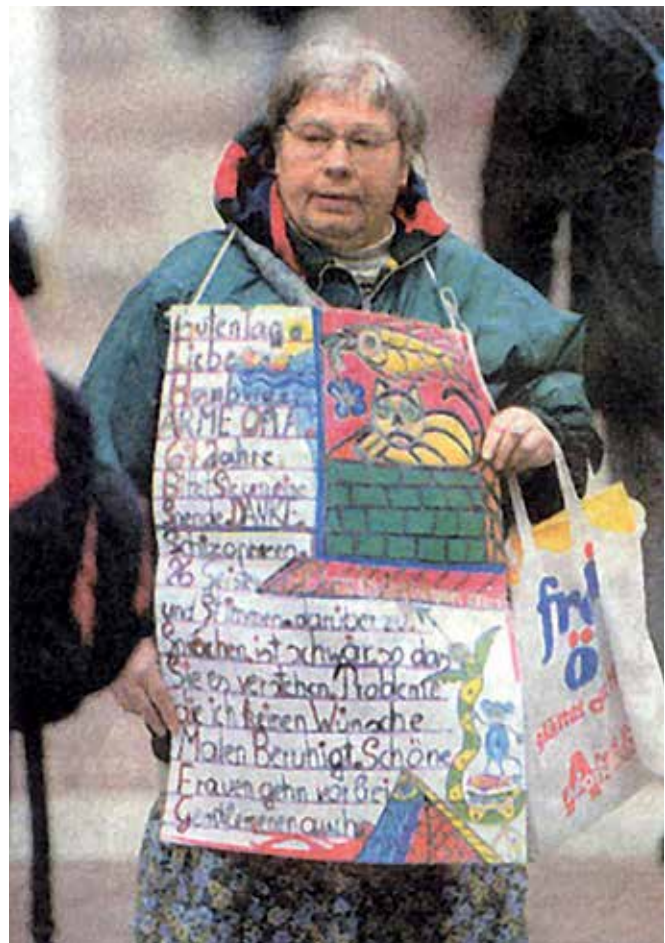 Guten Tag
Liebe
Hamburger
ARME OMA
Jahre
Bitte Sie um eine
Spende DANKE
26 Geister
und Stimmen darüber zu
sprechen ist schwär so das
Sie es verstehen Probleme
die ich keinen Wünsche
Malen Beruhigt Schöne
Frauen gehn vorbei
auch